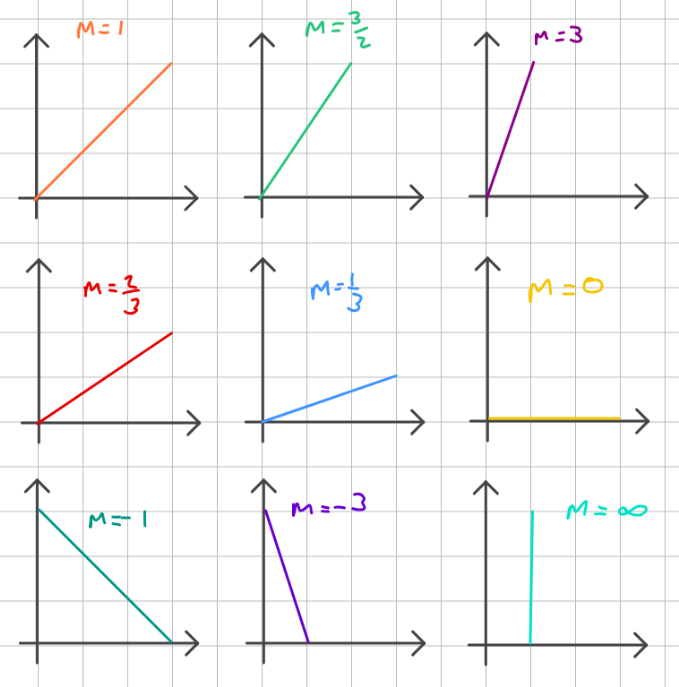 M = 1
M = 3/2
M = 3
M = 2/3
M = 1/3
M = 0
M = -1
M = -3
M = ∞